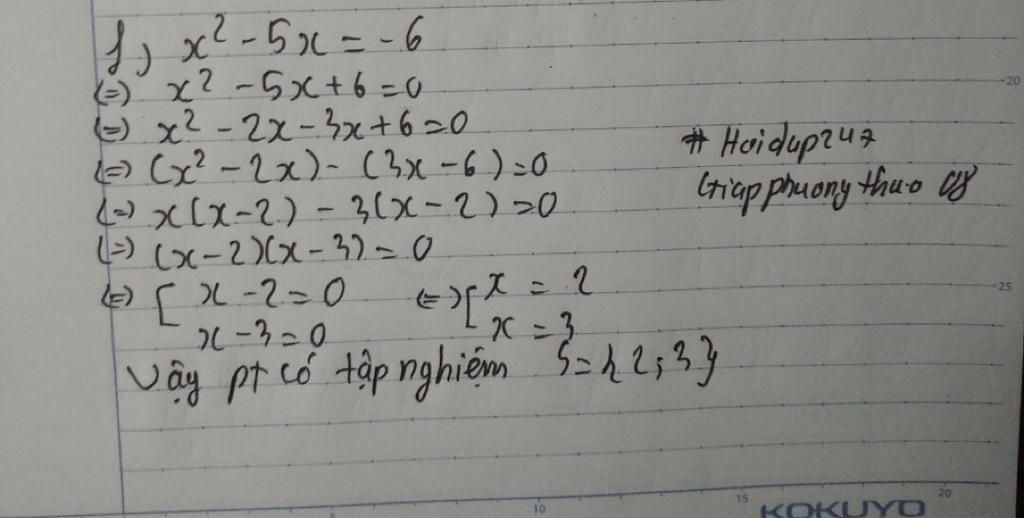 f) x² - 5x = -6
(=) x² - 5x + 6 = 0
(=) x² - 2x - 3x + 6 = 0
(=) (x² - 2x) - (3x - 6) = 0
(=) x(x - 2) - 3(x - 2) = 0
(=) (x - 2)(x - 3) = 0
(=) [ x - 2 = 0 (=) [ x = 2
x - 3 = 0 x = 3
Vậy pt có tập nghiệm S = { 2; 3 }
# Hoidap247
Giapphuongthao
20
25
10
15
20
KOKUYO